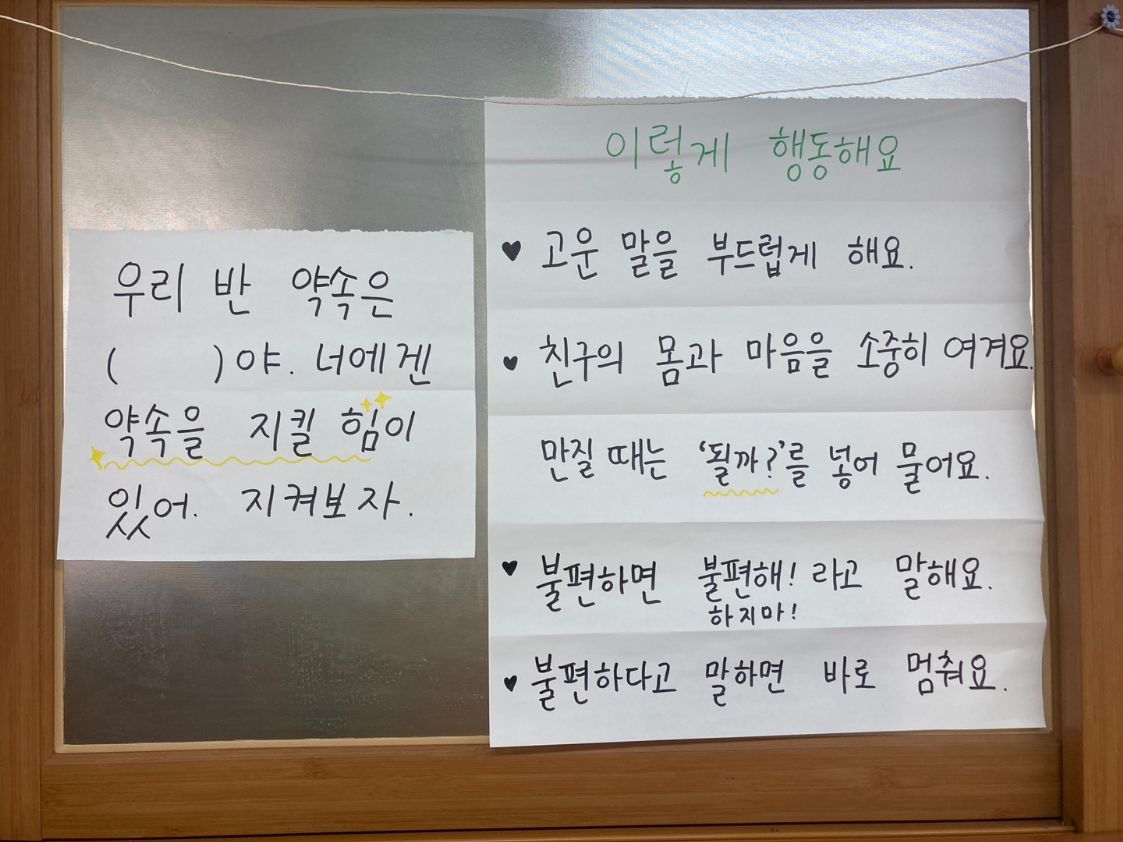 우리 반 약속은
(      )야. 너에겐
약속을 지킬 힘이
있어. 지켜보자.
이렇게 행동해요
♥ 고운 말을 부드럽게 해요.
♥ 친구의 몸과 마음을 소중히 여겨요.
만질 때는 '될까?'를 넣어 물어요.
♥ 불편하면 불편해! 라고 말해요.
하지마!
♥ 불편하다고 말하면 바로 멈춰요.